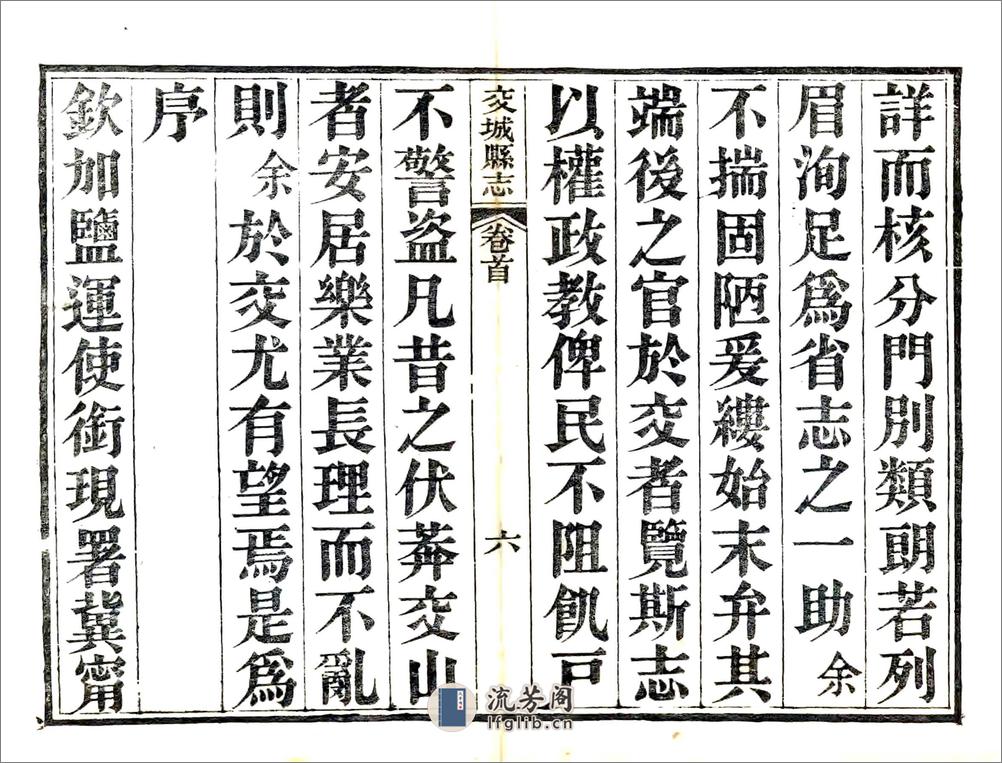 詳而核分門別類朗若列
眉洵足爲省志之一助余
不揣固陋爰縷始末弁其
端後之官於交者覽斯志
以權政教俾民不阻飢戸
交城縣志
卷首
六
不警盜凡昔之伏莽交山
者安居樂業長理而不亂
則余於交尤有望焉是爲
序
欽加鹽運使銜現署冀甯
流芳阁
lfglib.cn